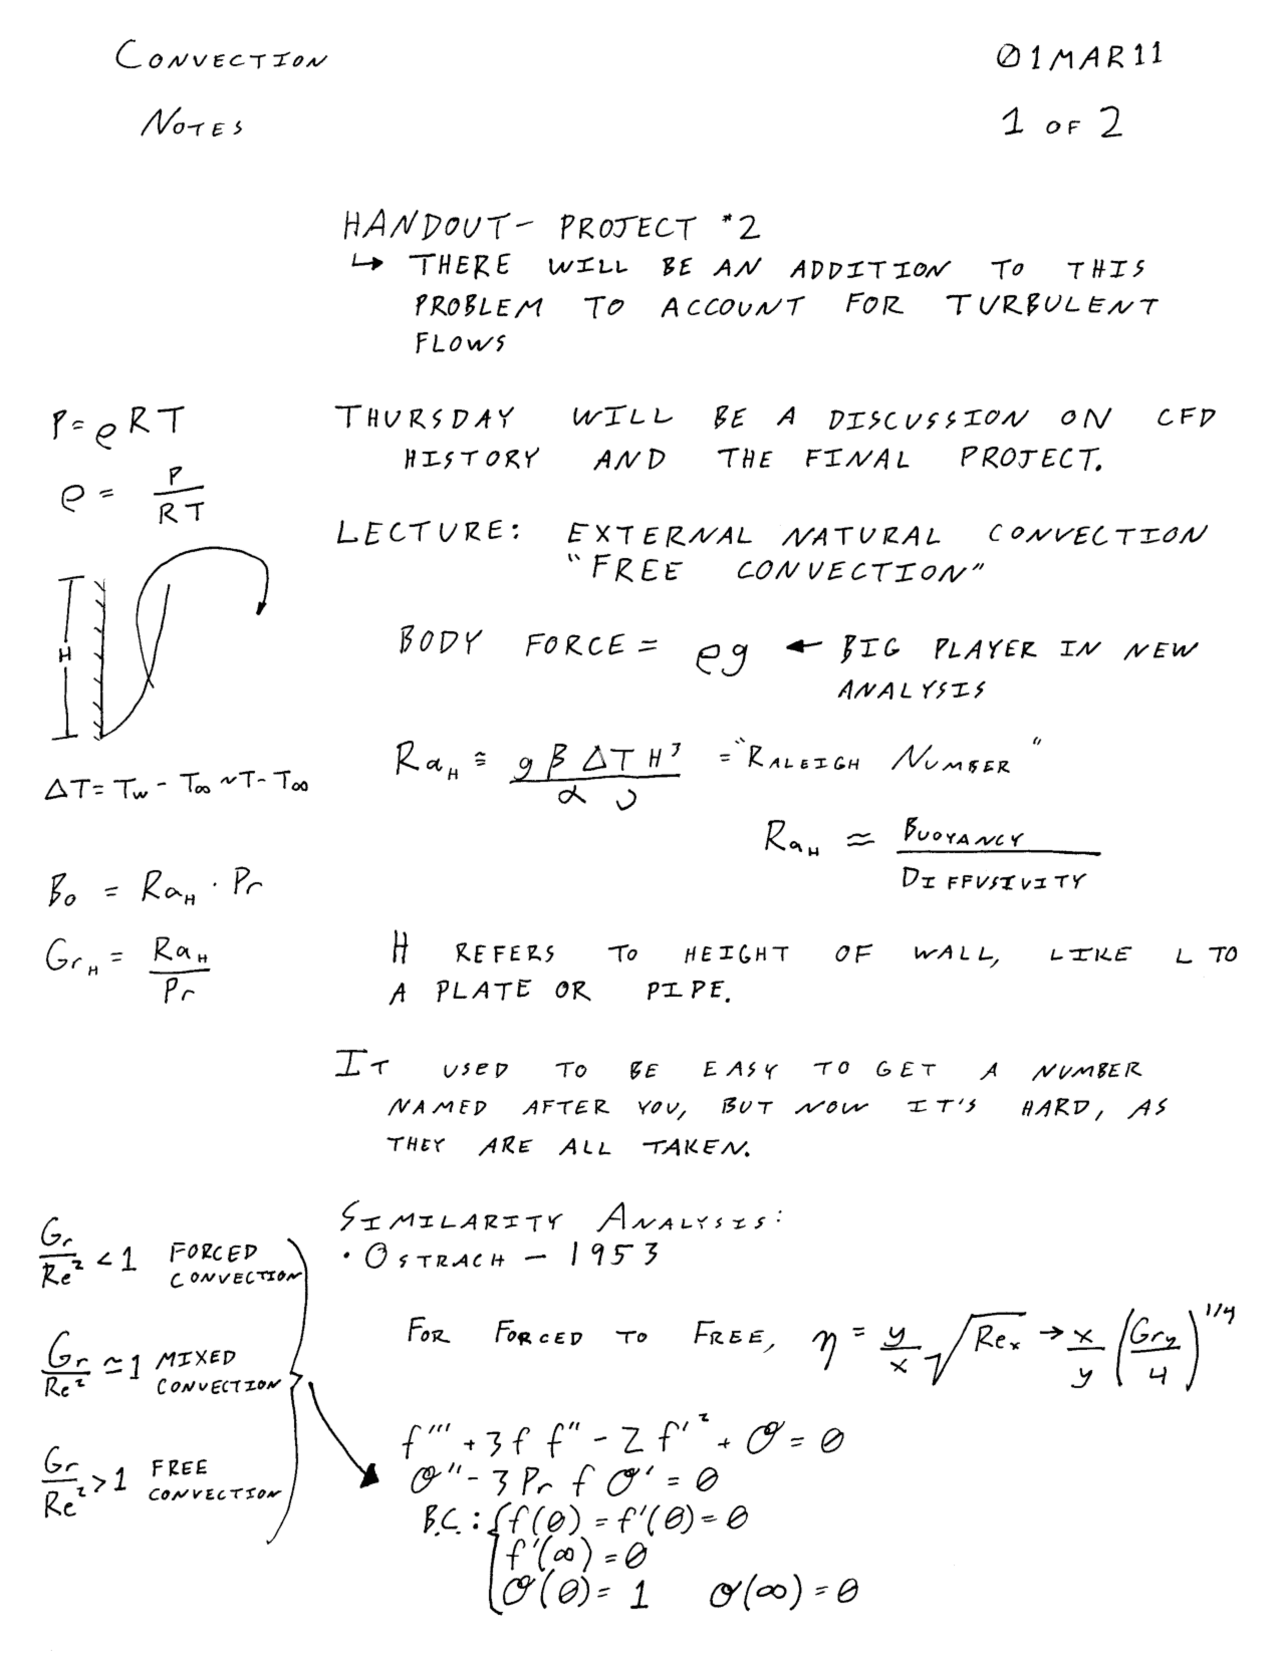 CONVECTION
NOTES
01MAR11
1 OF 2
HANDOUT- PROJECT #2
↳ THERE WILL BE AN ADDITION TO THIS
PROBLEM TO ACCOUNT FOR TURBULENT
FLOWS
P=ρRT
ρ = P/RT
THURSDAY WILL BE A DISCUSSION ON CFD
HISTORY AND THE FINAL PROJECT.
LECTURE: EXTERNAL NATURAL CONVECTION
"FREE CONVECTION"
H
BODY FORCE = ρg ← BIG PLAYER IN NEW
ANALYSIS
ΔT = T_w - T_∞ ~ T - T_∞
Ra_H ≅ gβΔTH³/αυ = "RALEIGH NUMBER"
Ra_H ≈ BUOYANCY/DIFFUSIVITY
Bo = Ra_H · Pr
Gr_H = Ra_H/Pr
H REFERS TO HEIGHT OF WALL, LIKE L TO
A PLATE OR PIPE.
IT USED TO BE EASY TO GET A NUMBER
NAMED AFTER YOU, BUT NOW IT'S HARD, AS
THEY ARE ALL TAKEN.
Gr/Re² < 1 FORCED
CONVECTION
Gr/Re² ≃ 1 MIXED
CONVECTION
Gr/Re² > 1 FREE
CONVECTION
SIMILARITY ANALYSIS:
· OSTRACH - 1953
FOR FORCED TO FREE, η = y/x √Re_x → x/y (Gr_y/4)^1/4
f''' + 3f f'' - 2f'² + θ = 0
θ'' - 3Pr f θ' = 0
B.C.: { f(0) = f'(0) = 0
f'(∞) = 0
θ(0) = 1 θ(∞) = 0